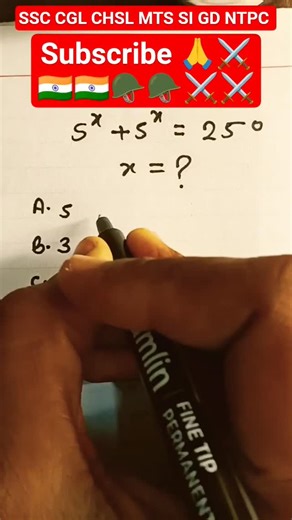 SSC CGL CHSL MTS SI GD NTPC
Subscribe 🙏⚔️
🇮🇳🇮🇳🪖🪖⚔️⚔️
5^x + 5^x = 250
x = ?
A. 5
B. 3
C.
mlin
FINE TIP
PERMANENT